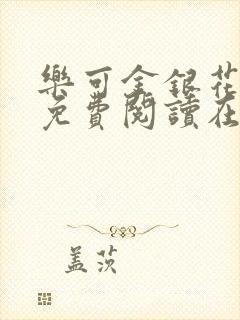 樂可金銀花
免費閱讀在
盖茨